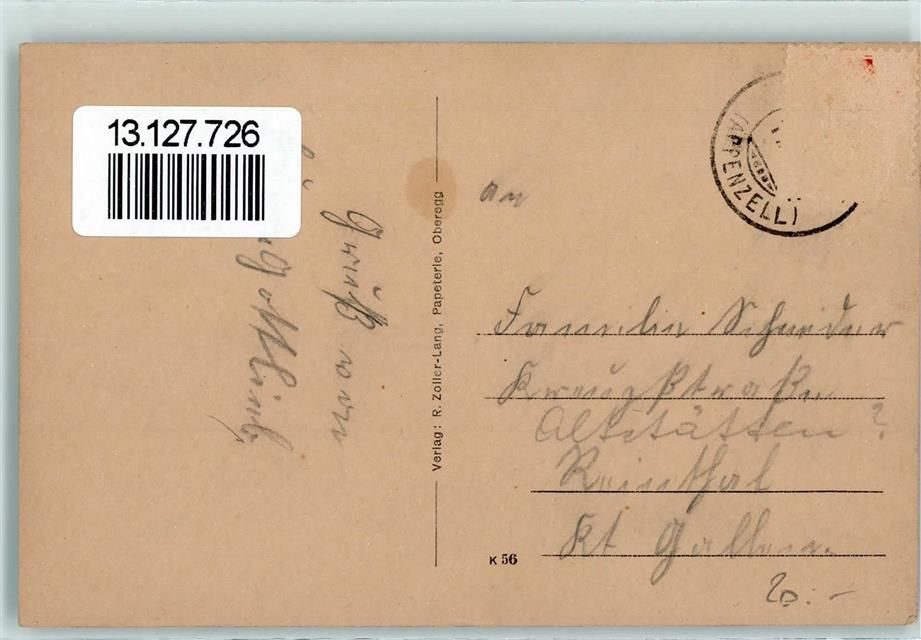 13.127.726
Grüße vom
Verlag: R. Zoller-Lang, Papeterie, Oberegg
(APPENZELL)
An
Familie Schneider
Kreuzstraße
Altstätten ?
Reinthal
Kt Gallen.
K 56
20.-